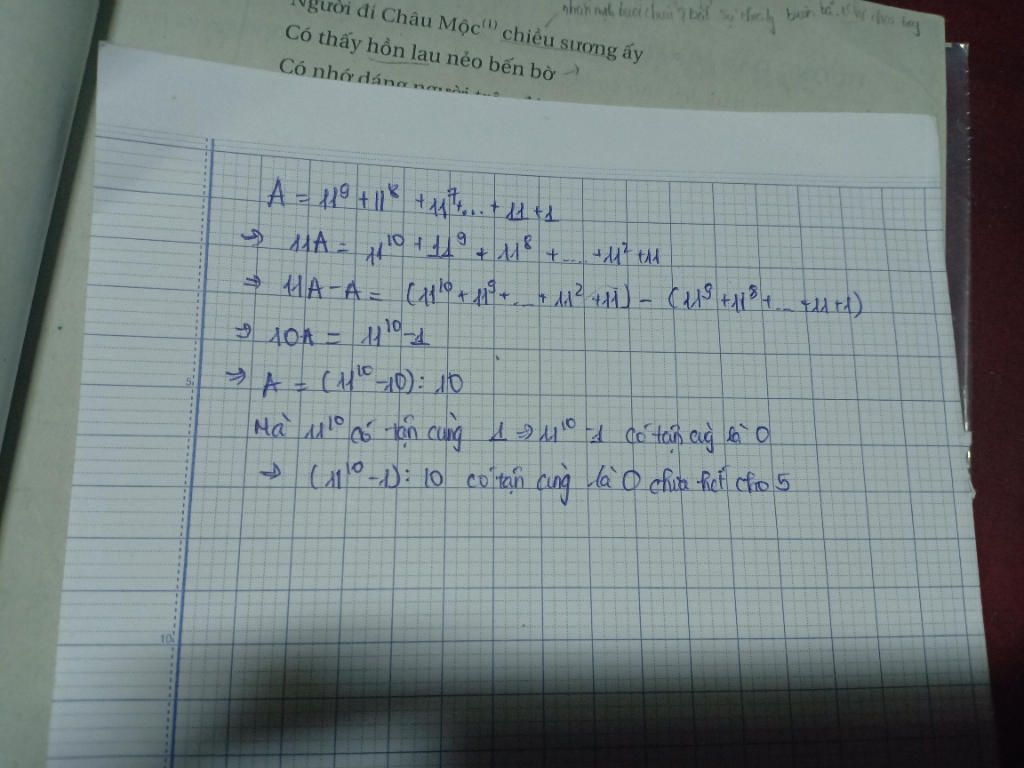 Người đi Châu Mộc(1) chiều sương ấy
Có thấy hồn lau nẻo bến bờ
Có nhớ dáng người
A = 11⁹ + 11⁸ + 11⁷+... + 11 + 1
=> 11A = 11¹⁰ + 11⁹ + 11⁸ + ... + 11² + 11
=> 11A - A = (11¹⁰ + 11⁹ + ... + 11² + 11) - (11⁹ + 11⁸ + ... + 11 + 1)
=> 10A = 11¹⁰ - 1
5
=> A = (11¹⁰ - 10) : 10
Mà 11¹⁰ có tận cùng 1 => 11¹⁰ - 1 có tận cùg là 0
=> (11¹⁰ - 1) : 10 có tận cùng là 0 chia hết cho 5
10